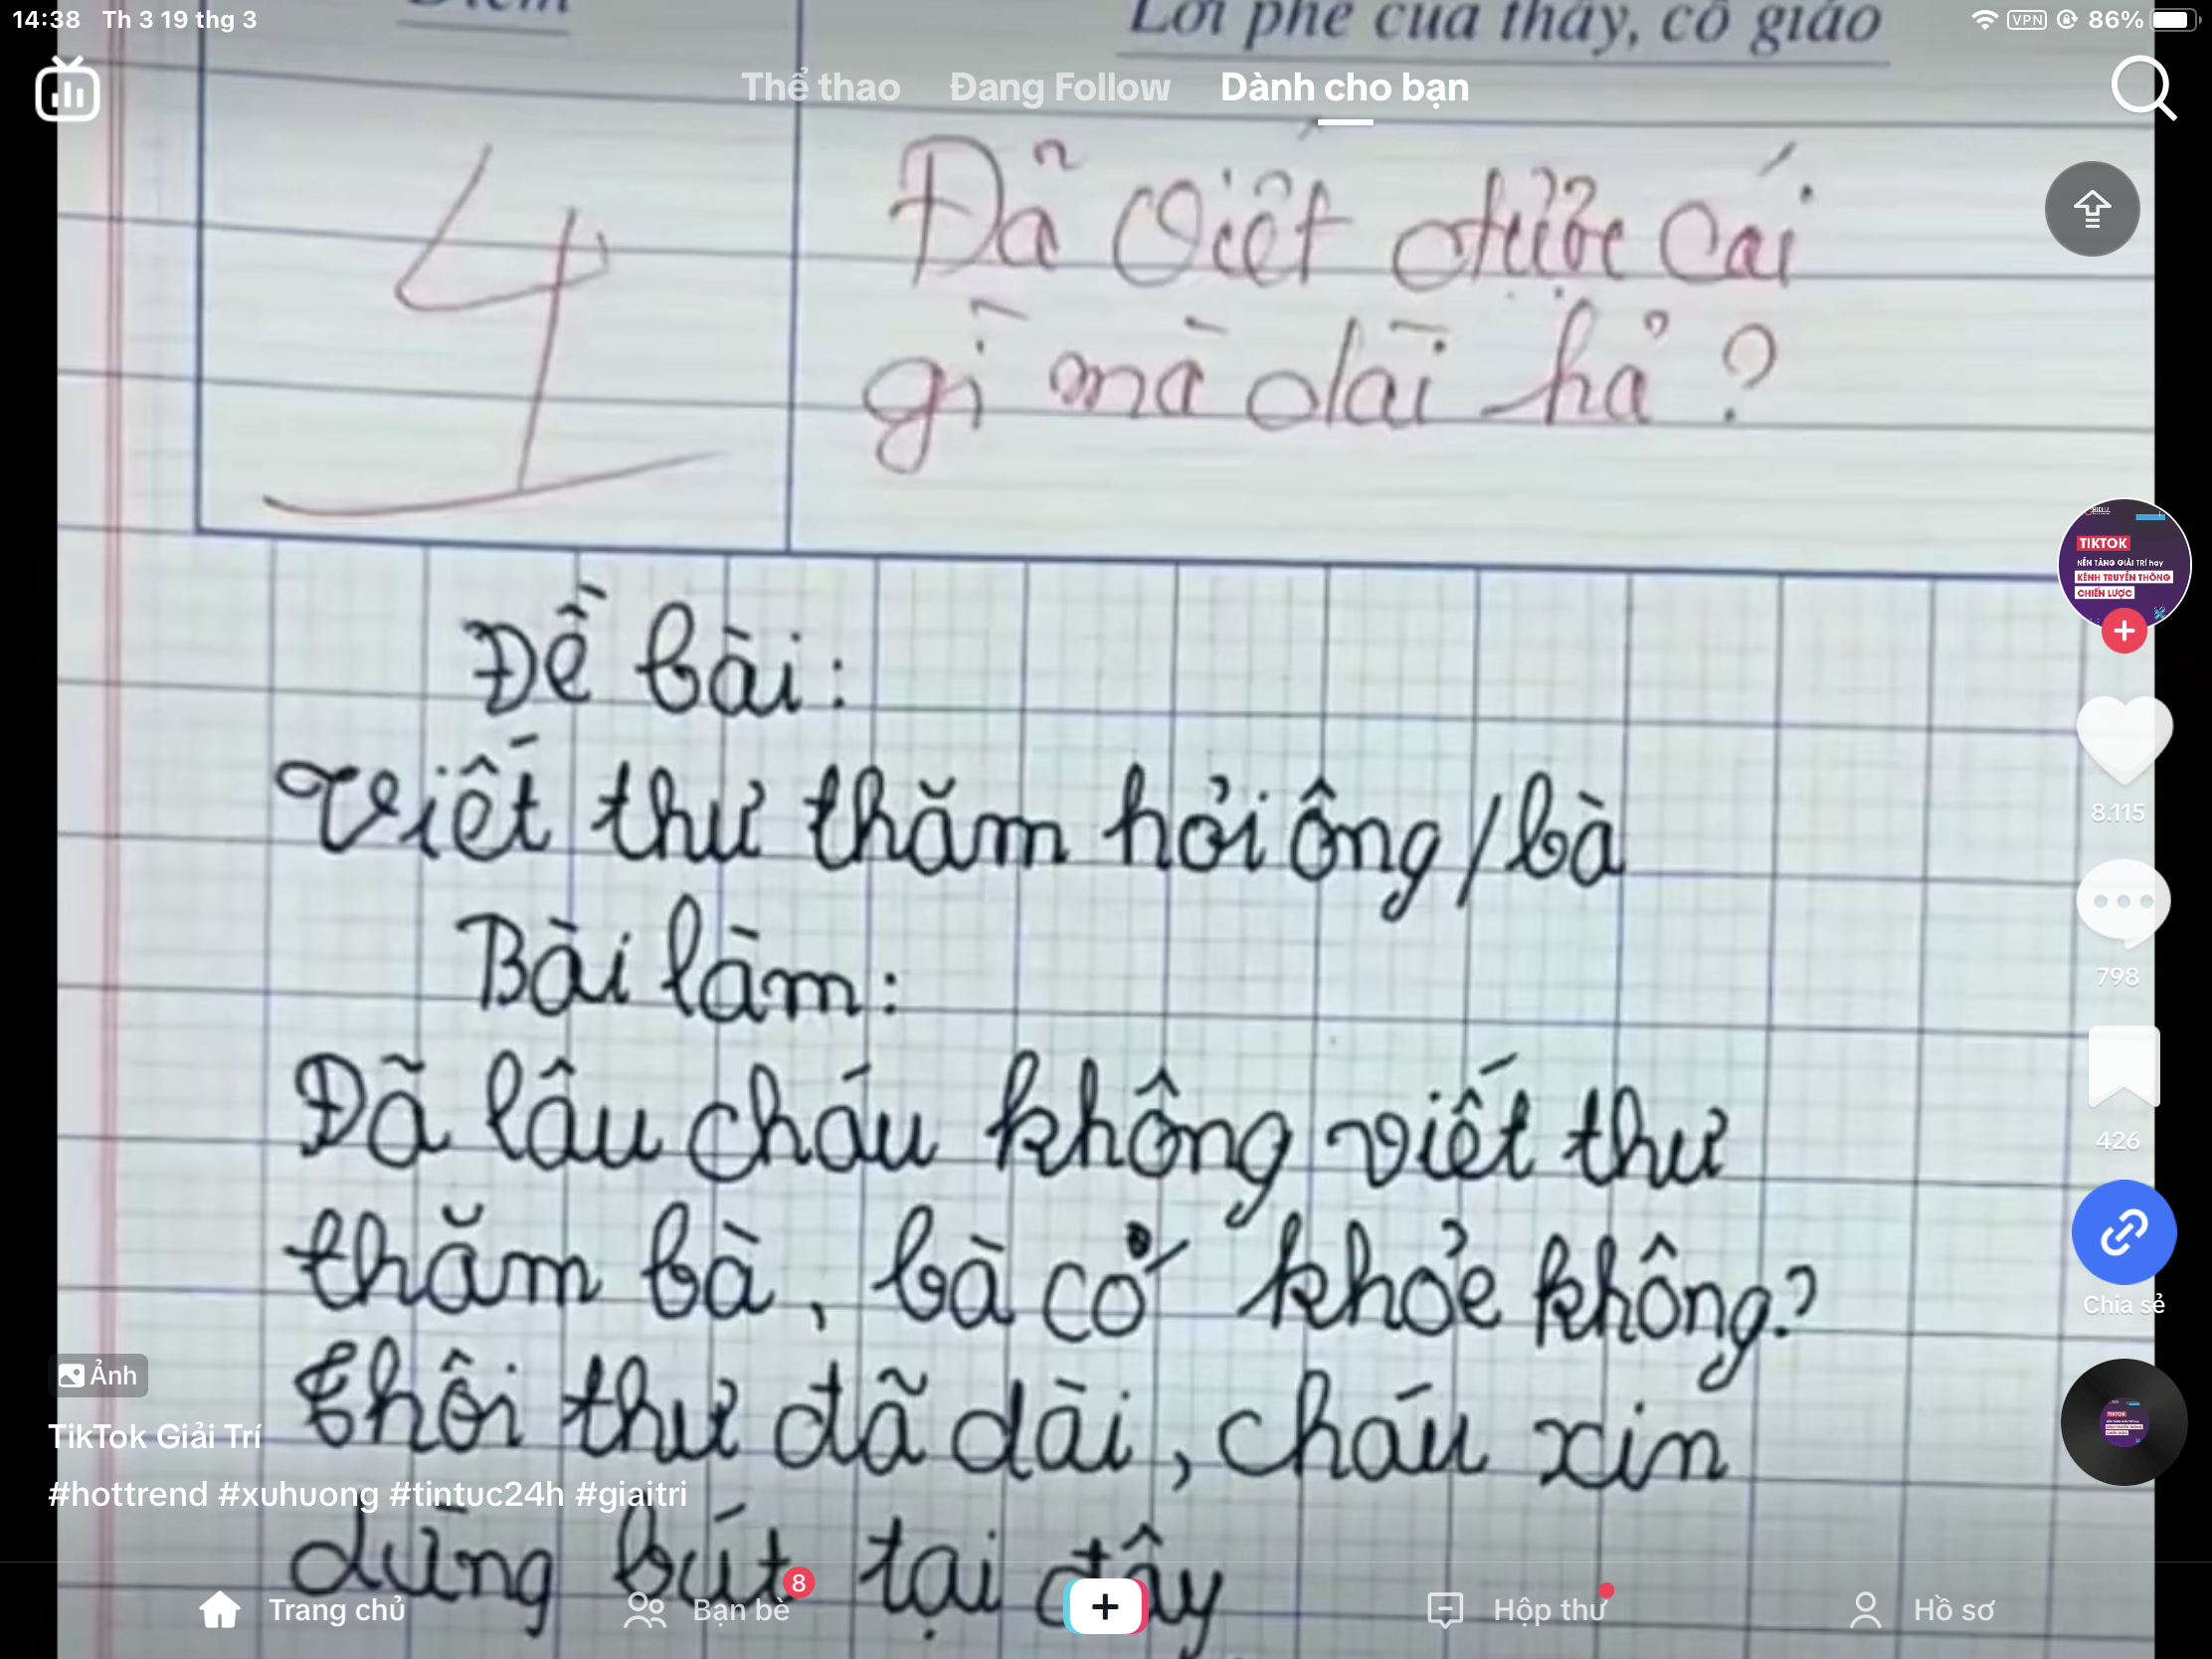 14:38 Th 3 19 thg 3
VPN 86%
Điểm
Lời phê của thầy, cô giáo
Thể thao Đang Follow Dành cho bạn
4
Đã viết được cái
gì mà dài hả?
Đề bài:
Viết thư thăm hỏi ông/bà
Bài làm:
Đã lâu cháu không viết thư
thăm bà, bà có khỏe không?
Thôi thư đã dài, cháu xin
dừng bút tại đây
TIKTOK
NỀN TẢNG GIẢI TRÍ hay
KÊNH TRUYỀN THÔNG
CHIẾN LƯỢC
8.115
798
426
Chia sẻ
Ảnh
TikTok Giải Trí
#hottrend #xuhuong #tintuc24h #giaitri
Trang chủ
Bạn bè 8
Hộp thư
Hồ sơ